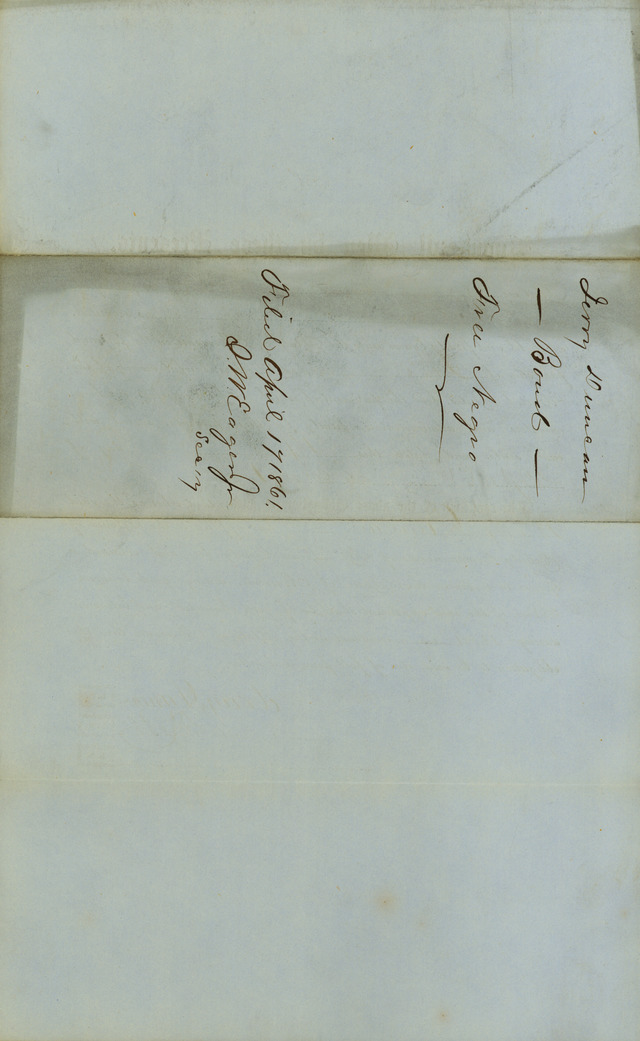 Jerry Duncan
— Bond —
Free Negro
Filed April 17 1861.
J. W. Eager Jr